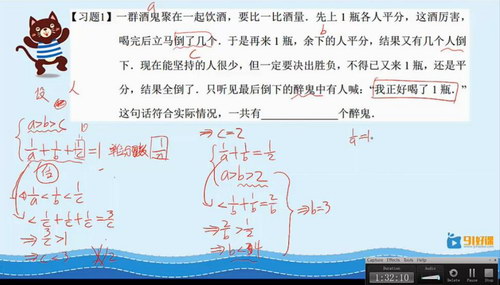 【习题1】一群酒鬼聚在一起饮酒，要比一比酒量．先上 1 瓶各人平分，这酒厉害，
喝完后立马倒了几个．于是再来 1 瓶，余下的人平分，结果又有几个人倒
下．现在能坚持的人很少，但一定要决出胜负，不得已又来 1 瓶，还是平
分，结果全倒了．只听见最后倒下的醉鬼中有人喊：“我正好喝了 1 瓶．”
这句话符合实际情况，一共有____________个醉鬼．
a
b
c
设 人
a>b>c
1/a+1/b+1/c=1
1/a<1/b<1/c
<1/c+1/c+1/c=3/c
⇒3/c>1
⇒c<3
⇒c=2
1/a+1/b=1/2
a>b>2
<1/b+1/b=2/b
⇒2/b>1/2
⇒b<4
⇒b=3
91好课
Duration
1:32:10
Pause
Stop